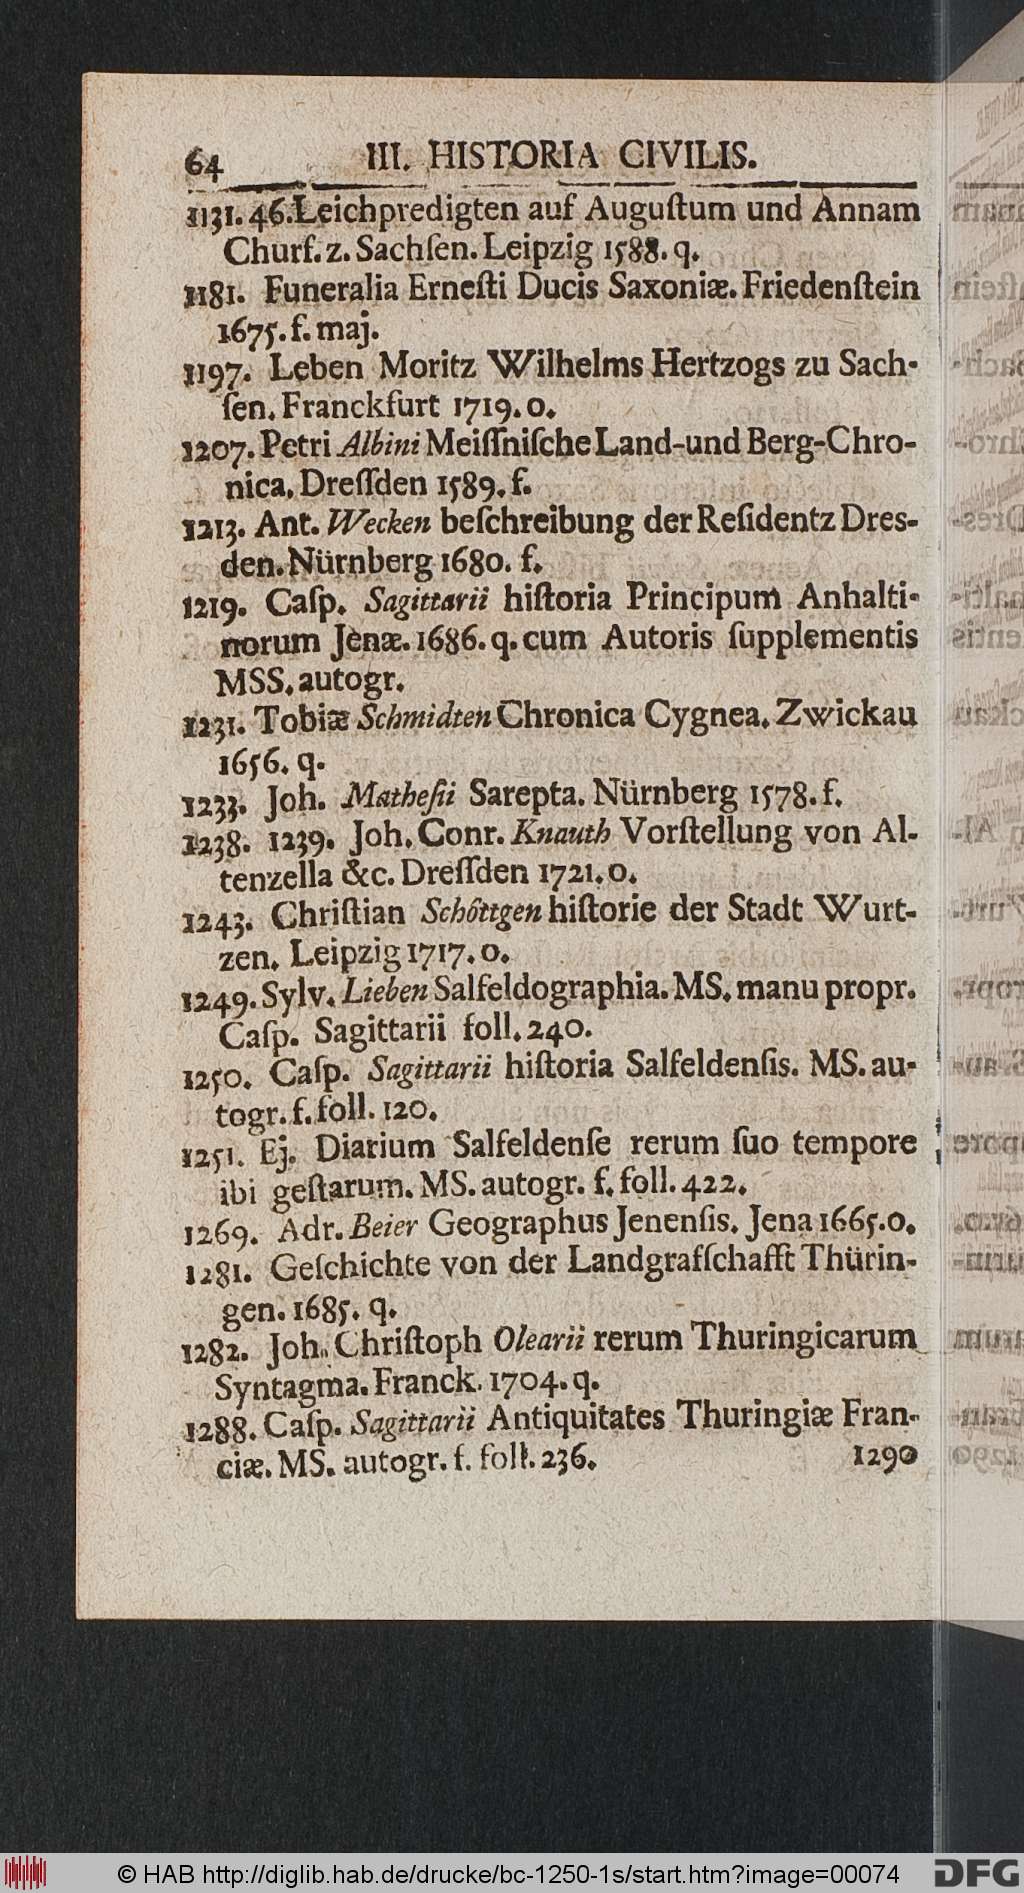 64 III. HISTORIA CIVILIS.
1131. 46. Leichpredigten auf Auguſtum und Annam
Churf. z. Sachſen. Leipzig 1588. q.
1181. Funeralia Erneſti Ducis Saxoniæ. Friedenſtein
1675. f. maj.
1197. Leben Moritz Wilhelms Hertzogs zu Sach-
ſen. Franckfurt 1719. o.
1207. Petri Albini Meiſſniſche Land-und Berg-Chro-
nica. Dreſſden 1589. f.
1213. Ant. Wecken beſchreibung der Reſidentz Dres-
den. Nürnberg 1680. f.
1219. Caſp. Sagittarii hiſtoria Principum Anhalti-
norum Jenæ. 1686. q. cum Autoris ſupplementis
MSS. autogr.
1231. Tobiæ Schmidten Chronica Cygnea. Zwickau
1656. q.
1233. Joh. Matheſii Sarepta. Nürnberg 1578. f.
1238. 1239. Joh. Conr. Knauth Vorſtellung von Al-
tenzella &c. Dreſſden 1721. o.
1243. Chriſtian Schöttgen hiſtorie der Stadt Wurt-
zen. Leipzig 1717. o.
1249. Sylv. Lieben Salfeldographia. MS. manu propr.
Caſp. Sagittarii foll. 240.
1250. Caſp. Sagittarii hiſtoria Salfeldenſis. MS. au-
togr. f. foll. 120.
1251. Ej. Diarium Salfeldenſe rerum ſuo tempore
ibi geſtarum. MS. autogr. f. foll. 422.
1269. Adr. Beier Geographus Jenenſis. Jena 1665. o.
1281. Geſchichte von der Landgrafſchafft Thürin-
gen. 1685. q.
1282. Joh. Chriſtoph Olearii rerum Thuringicarum
Syntagma. Franck. 1704. q.
1288. Caſp. Sagittarii Antiquitates Thuringiæ Fran-
ciæ. MS. autogr. f. foll. 236. 1290
© HAB http://diglib.hab.de/drucke/bc-1250-1s/start.htm?image=00074 DFG